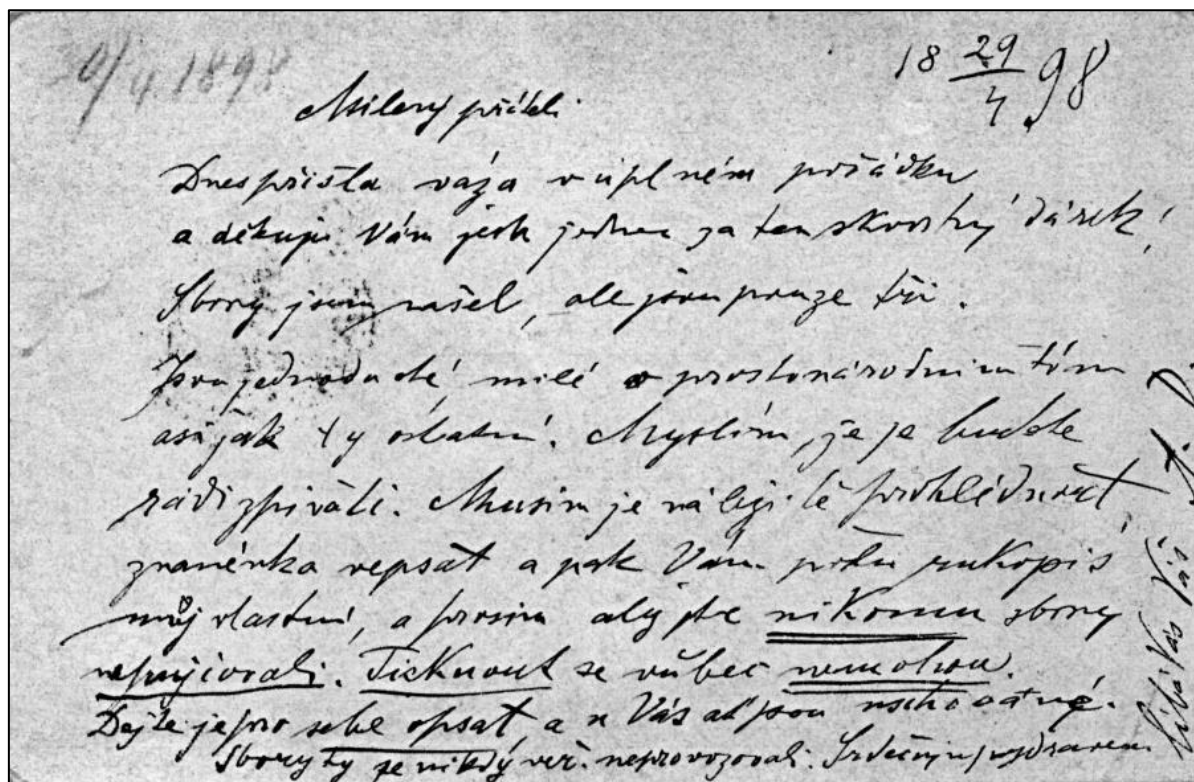 30/4 1898
18 29/4 98
Milený příteli
Dnes přišla váza v úplném pořádku
a děkuji Vám jestě jednou za ten skvostný dárek!
Sbory jsem našel, ale jsou pouze tři.
Jsou jednoduché, milé v prostonárodním tónu
asi jak ty ostatní. Myslím, že je budete
rádi zpívati. Musím je náležitě prohlédnout,
znaménka vepsat a pak Vám pošlu rukopis
můj vlastní, a prosím abyste nikomu sbory
nepůjčovali. Tisknout se vůbec nemohou.
Dejte je pro sebe opsat, a u Vás ať jsou uschovány.
Sbory ty se nikdy veř. neprovozovali. Srdečným pozdravem
Líbá Vás Váš